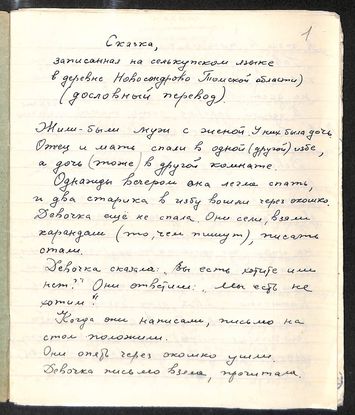 1
Сказка,
записанная на селькупском языке
в деревне Новосондрово Томской области)
(дословный перевод).
Жили-были муж с женой. У них была дочь.
Отец и мать спали в одной (другой) избе,
а дочь (тоже) в другой комнате.
Однажды вечером она легла спать,
и два старика в избу вошли через окошко.
Девочка ещё не спала. Они сели, взяли
карандаш (то, чем пишут), писать
стали.
Девочка сказала: „Вы есть хотите или
нет?" Они ответили: „Мы есть не
хотим".
Когда они написали, письмо на
стол положили.
Они опять через окошко ушли.
Девочка письмо взяла, прочитала.